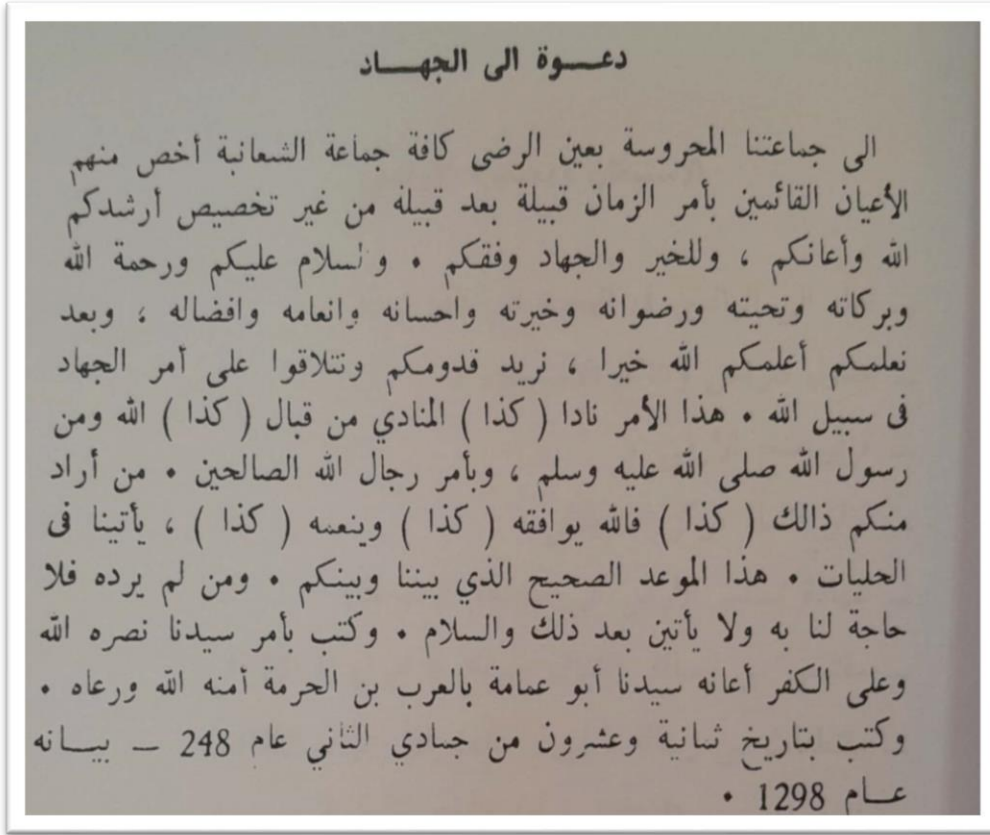 دعـــوة الى الجهـــاد
الى جماعتنا المحروسة بعين الرضى كافة جماعة الشعانبة أخص منهم
الأعيان القائمين بأمر الزمان قبيلة بعد قبيلة من غير تخصيص أرشدكم
الله وأعانكم ، وللخير والجهاد وفقكم • والسلام عليكم ورحمة الله
وبركاته وتحيته ورضوانه وخيرته واحسانه وانعامه وافضاله ، وبعد
نعلمكم أعلمكم الله خيرا ، نريد قدومكم ونتلاقوا على أمر الجهاد
فى سبيل الله • هذا الأمر نادا ( كذا ) المنادي من قبال ( كذا ) الله ومن
رسول الله صلى الله عليه وسلم ، وبأمر رجال الله الصالحين • من أراد
منكم ذالك ( كذا ) فالله يوافقه ( كذا ) وينعمه ( كذا ) ، يأتينا فى
الحليات • هذا الموعد الصحيح الذي بيننا وبينكم • ومن لم يرده فلا
حاجة لنا به ولا يأتين بعد ذلك والسلام • وكتب بأمر سيدنا نصره الله
وعلى الكفر أعانه سيدنا أبو عمامة بالعرب بن الحرمة أمنه الله ورعاه •
وكتب بتاريخ ثمانية وعشرون من جمادي الثاني عام 248 ــ بيـــانه
عـــام 1298 •